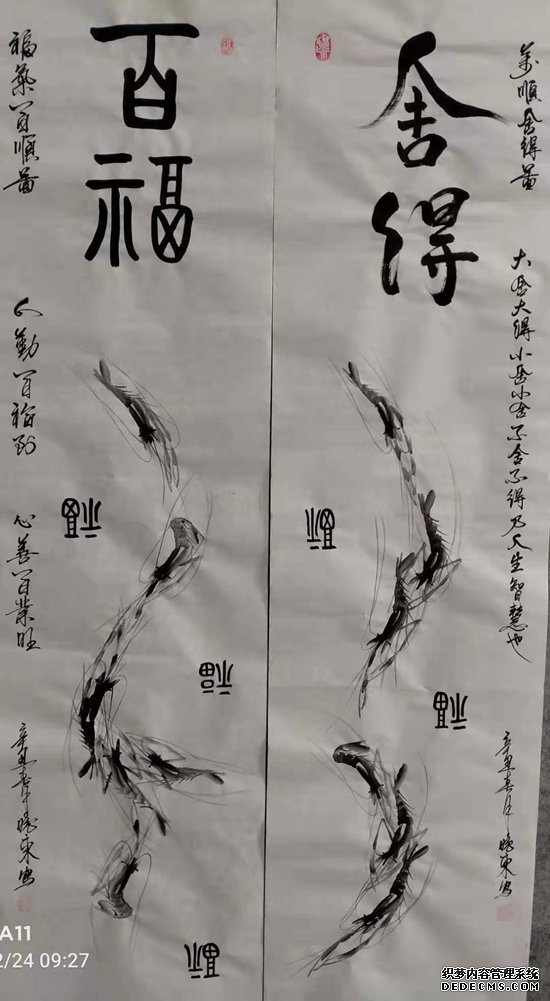 舍得
万順舍得酱
大舍大得小舍小得不舍不得乃人生智慧也
辛丑春月晓東写
百福
福業百順
人勤百福到
心善百業旺
辛丑春月晓東写
福
福
福
福
福
A11
2/24 09:27
织梦内容管理系统
DEDECMS.COM